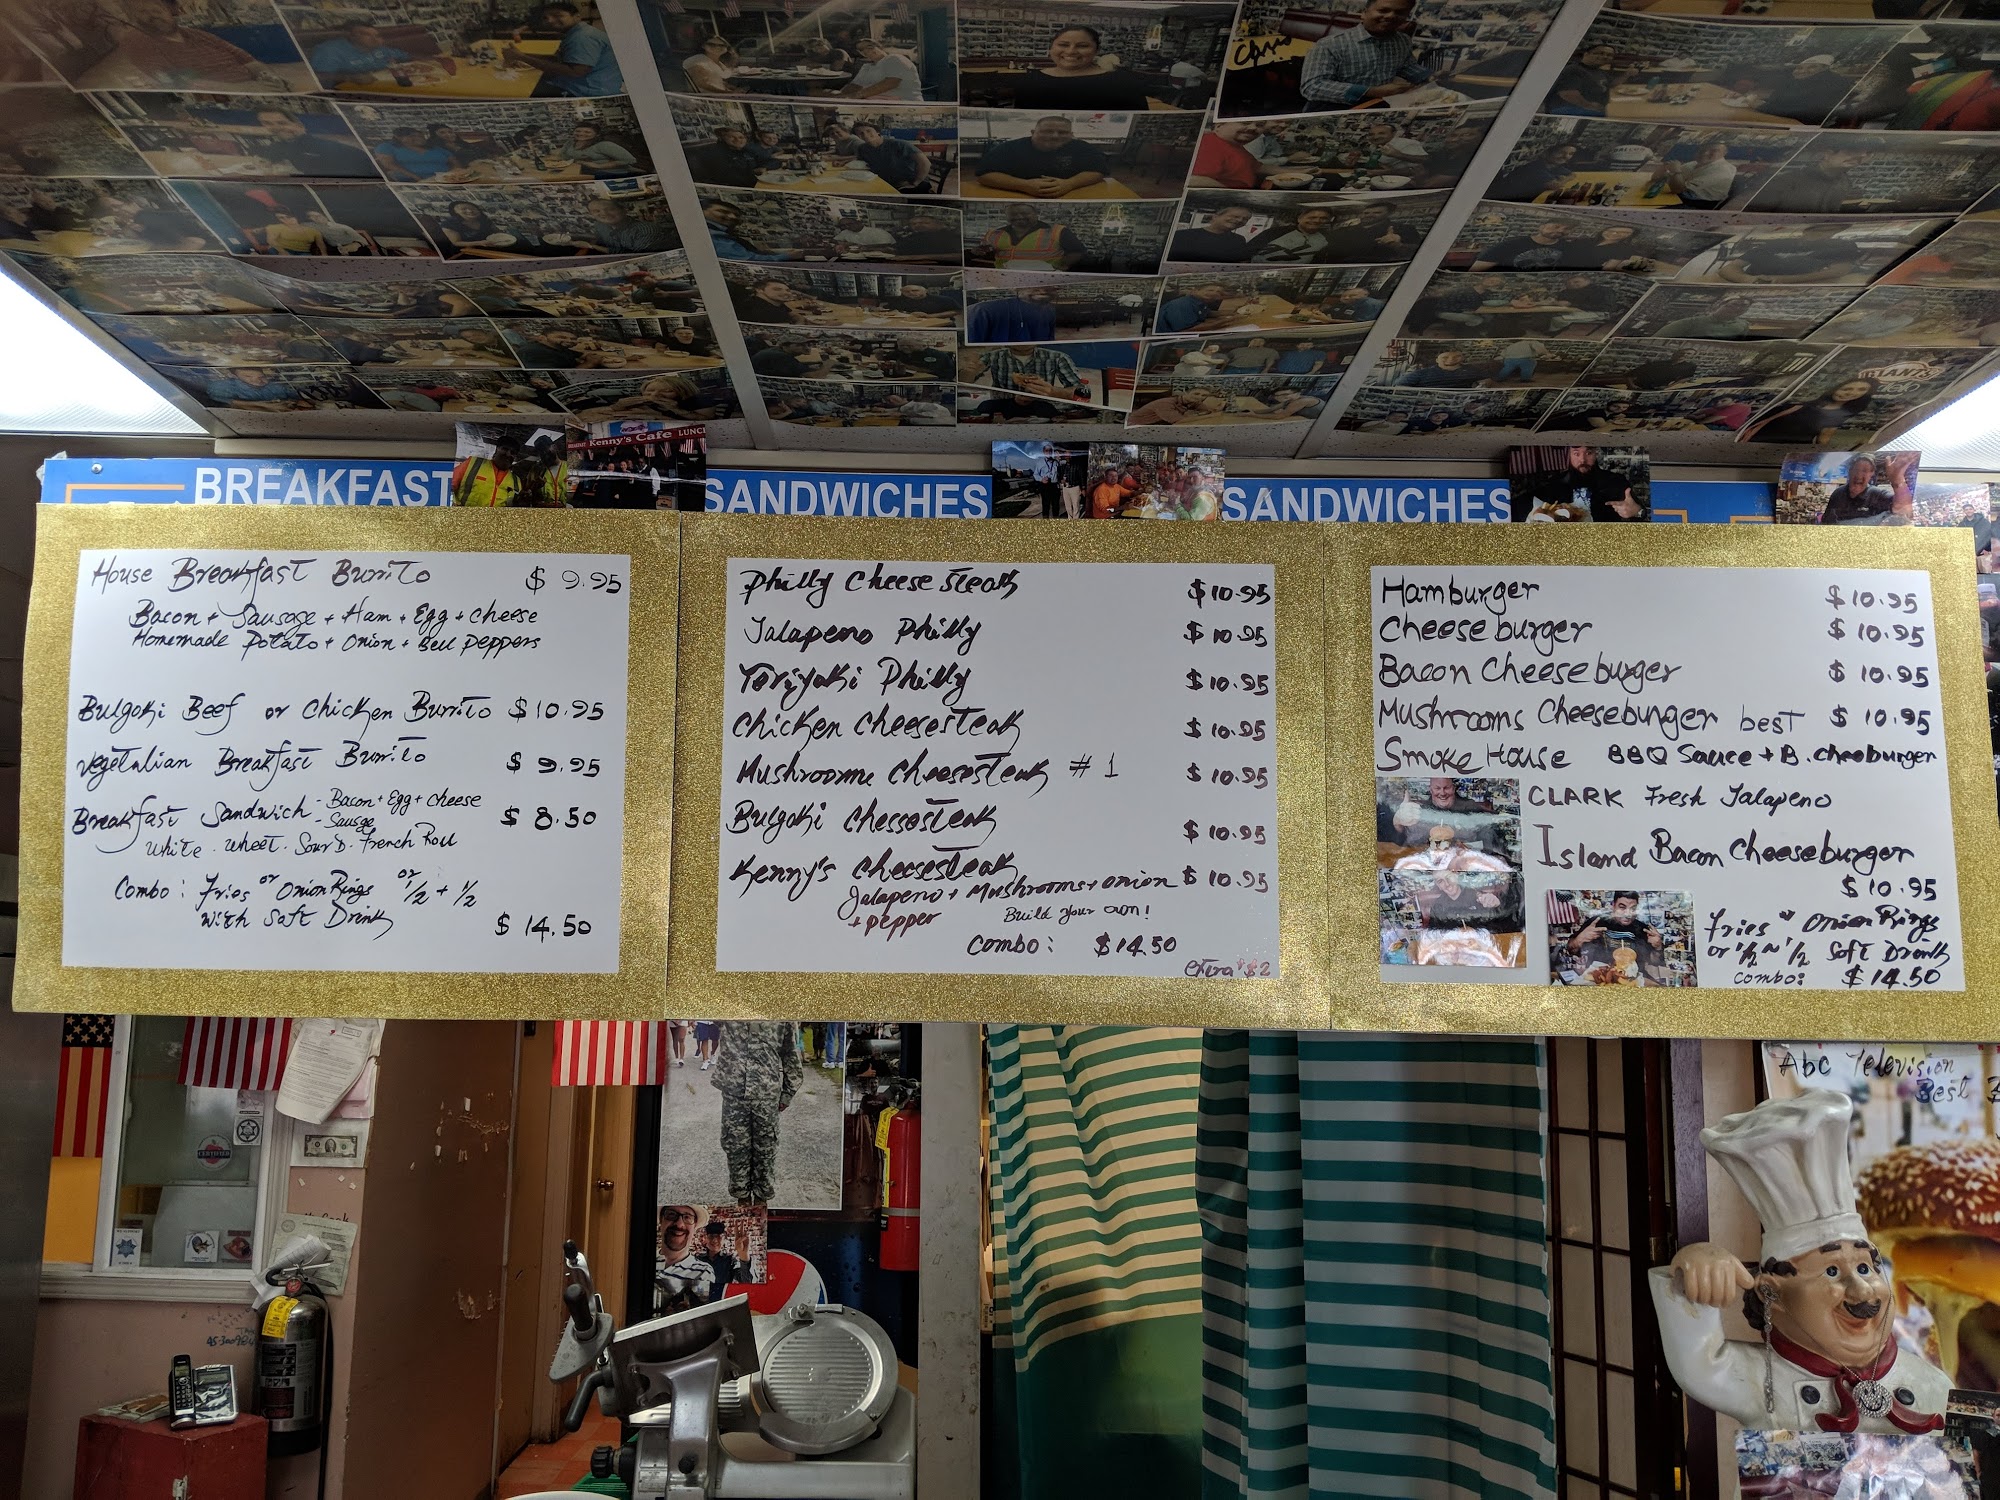 Chris
GIANTS
BREAKFAST
Kenny's Cafe
LUNCH
SANDWICHES
SANDWICHES
House Breakfast Burrito $ 9.95
Bacon + Sausage + Ham + Egg + cheese
Homemade Potato + Onion + Bell peppers
Bulgoki Beef or Chicken Burrito $ 10.95
Vegetalian Breakfast Burrito $ 9.95
Breakfast Sandwich - Bacon + Egg + cheese $ 8.50
- Sausge
White . Wheet . Sour D . French Roll
Combo : Fries or Onion Rings or 1/2 + 1/2
with Soft Drink $ 14.50
Philly Cheese steak $ 10.95
Jalapeno Philly $ 10.95
Teriyaki Philly $ 10.95
Chicken Cheesesteak $ 10.95
Mushroome Cheesesteak # 1 $ 10.95
Bulgoki Chessesteak $ 10.95
Kenny's Cheesesteak $ 10.95
Jalapeno + Mushrooms + onion
+ pepper Build your own!
Combo : $ 14.50
extra $2
Hamburger $ 10.95
Cheeseburger $ 10.95
Bacon Cheeseburger $ 10.95
Mushrooms Cheeseburger best $ 10.95
Smoke House BBQ Sauce + B. cheeburger
CLARK Fresh Jalapeno
Island Bacon Cheeseburger
$ 10.95
Fries or Onion Rings
or 1/2 ~ 1/2 Soft Drink
Combo: $ 14.50
Abc Television
Best
CERTIFIED